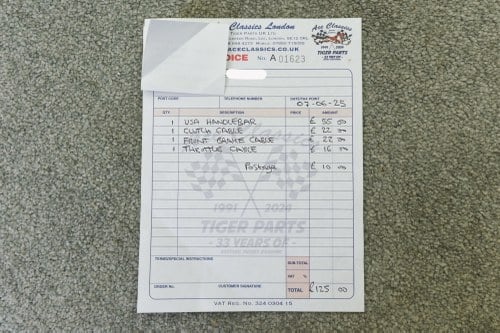 Classics London
Ace Classics
TIGER PARTS UK LTD
ACECLASSICS.CO.UK
OICE No. A 01623
1991 2024
TIGER PARTS
- 33 YEARS OF -
POST CODE TELEPHONE NUMBER DATE/TAX POINT
07-06-25
QTY. DESCRIPTION PRICE AMOUNT
1 USA HANDLEBAR £ 55 00
1 CLUTCH CABLE £ 22 00
1 FRONT BRAKE CABLE £ 22 00
1 THROTTLE CABLE £ 16 00
POSTAGE £ 10 00
Ace Classics
1991 2024
TIGER PARTS
- 33 YEARS OF -
TERMS/SPECIAL INSTRUCTIONS
SUB-TOTAL
VAT %
ORDER No. CUSTOMER SIGNATURE TOTAL £125 00
VAT Reg. No. 324 0304 15